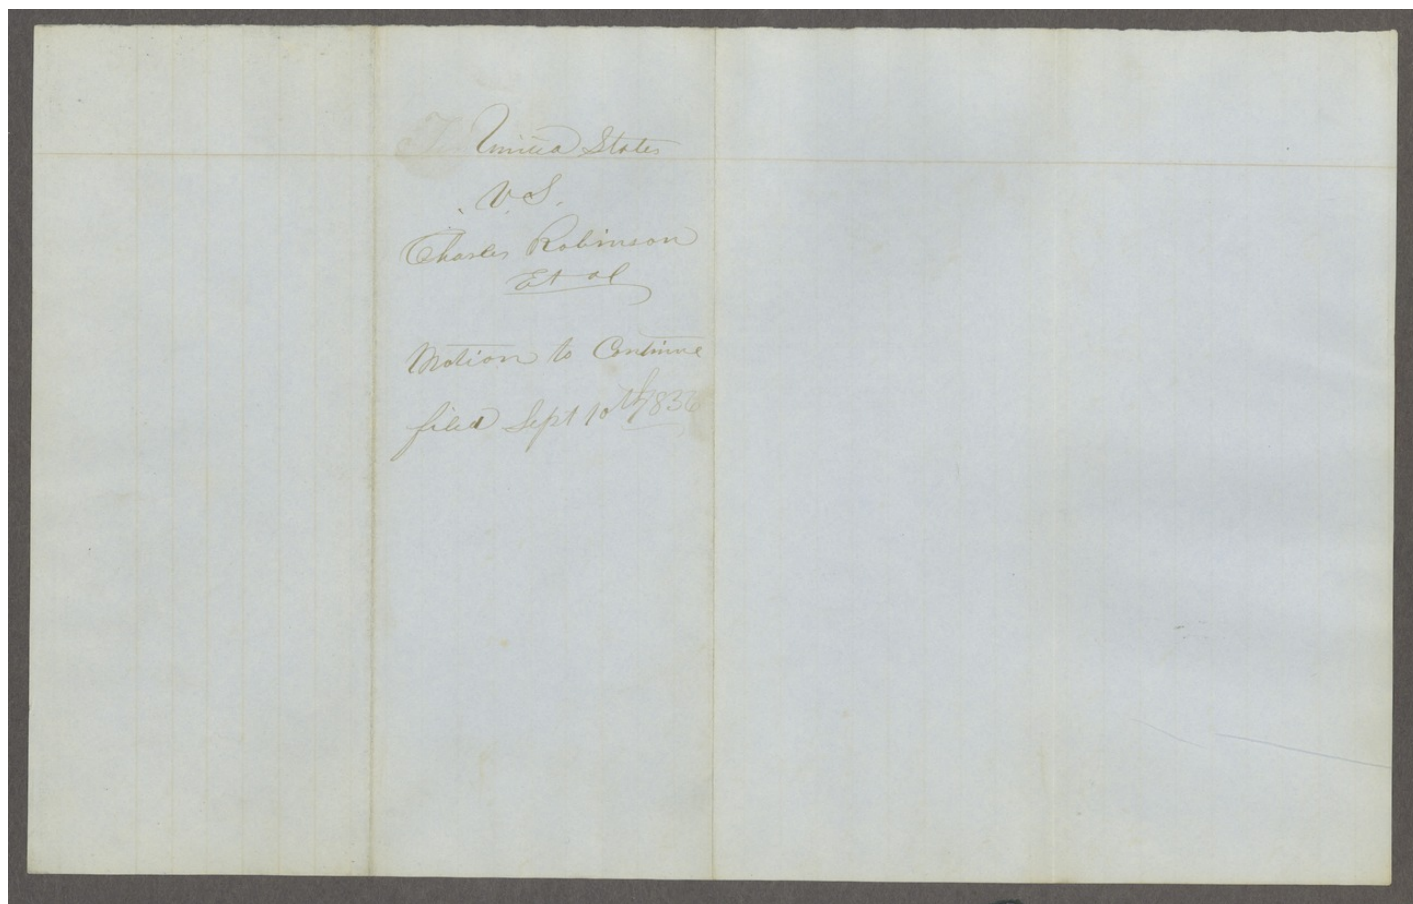 The United States
V.S.
Charles Robinson
et al
Motion to Continue
filed Sept 10th 1856